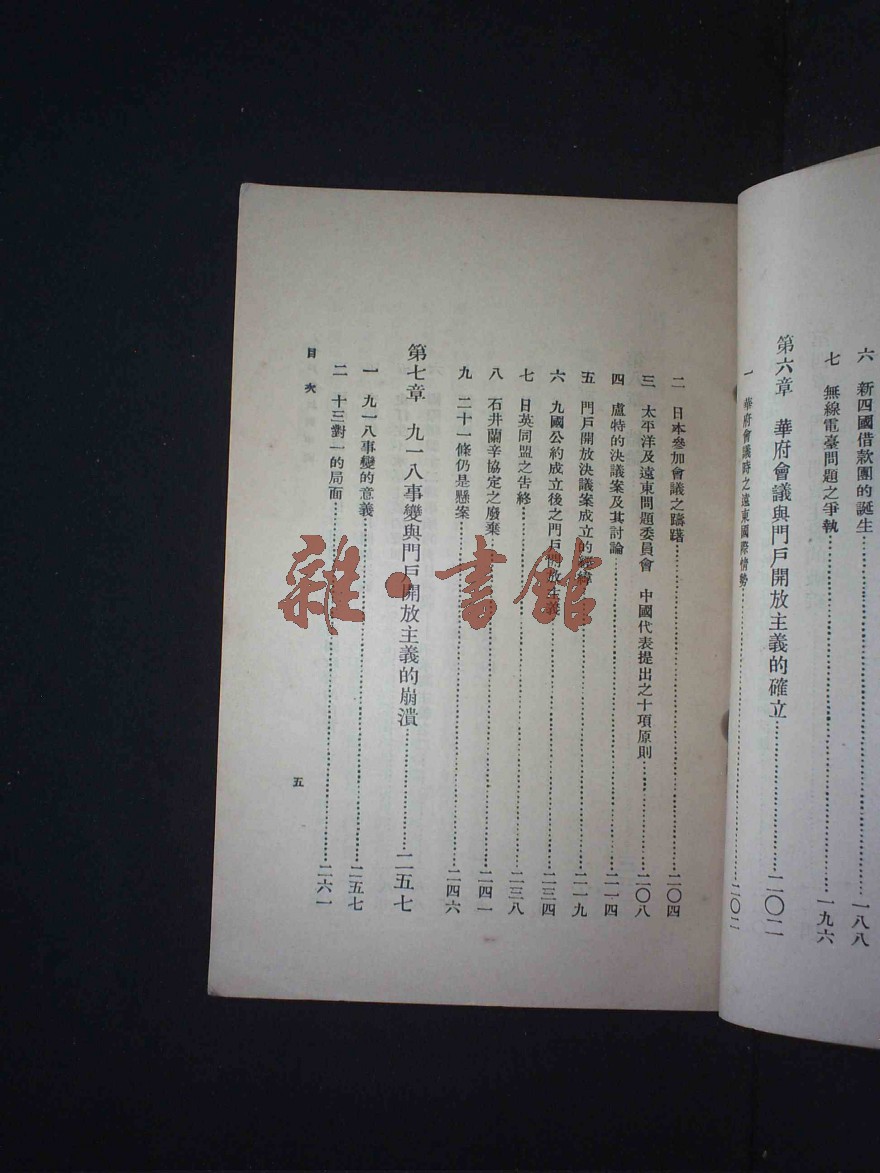 六　新四國借款團的誕生……一八八
七　無線電臺問題之爭執……一九六
第六章　華府會議與門戶開放主義的確立……二〇二
一　華府會議時之遠東國際情勢……二〇二
二　日本參加會議之躊躇……二〇四
三　太平洋及遠東問題委員會　中國代表提出之十項原則……二〇八
四　盧特的決議案及其討論……二一四
五　門戶開放決議案成立的經緯……二一九
六　九國公約成立後之門戶開放主義……二三四
七　日英同盟之告終……二三八
八　石井蘭辛協定之廢棄……二四一
九　二十一條仍是懸案……二四六
第七章　九一八事變與門戶開放主義的崩潰……二五七
一　九一八事變的意義……二五七
二　十三對一的局面……二六一
目次
五
雜·書館